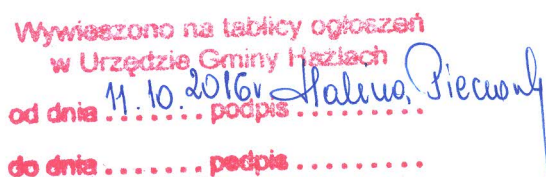 Wywieszono na tablicy ogłoszeń
w Urzędzie Gminy Hażlach
od dnia 11.10.2016r podpis Halina
do dnia ........ podpis ..........